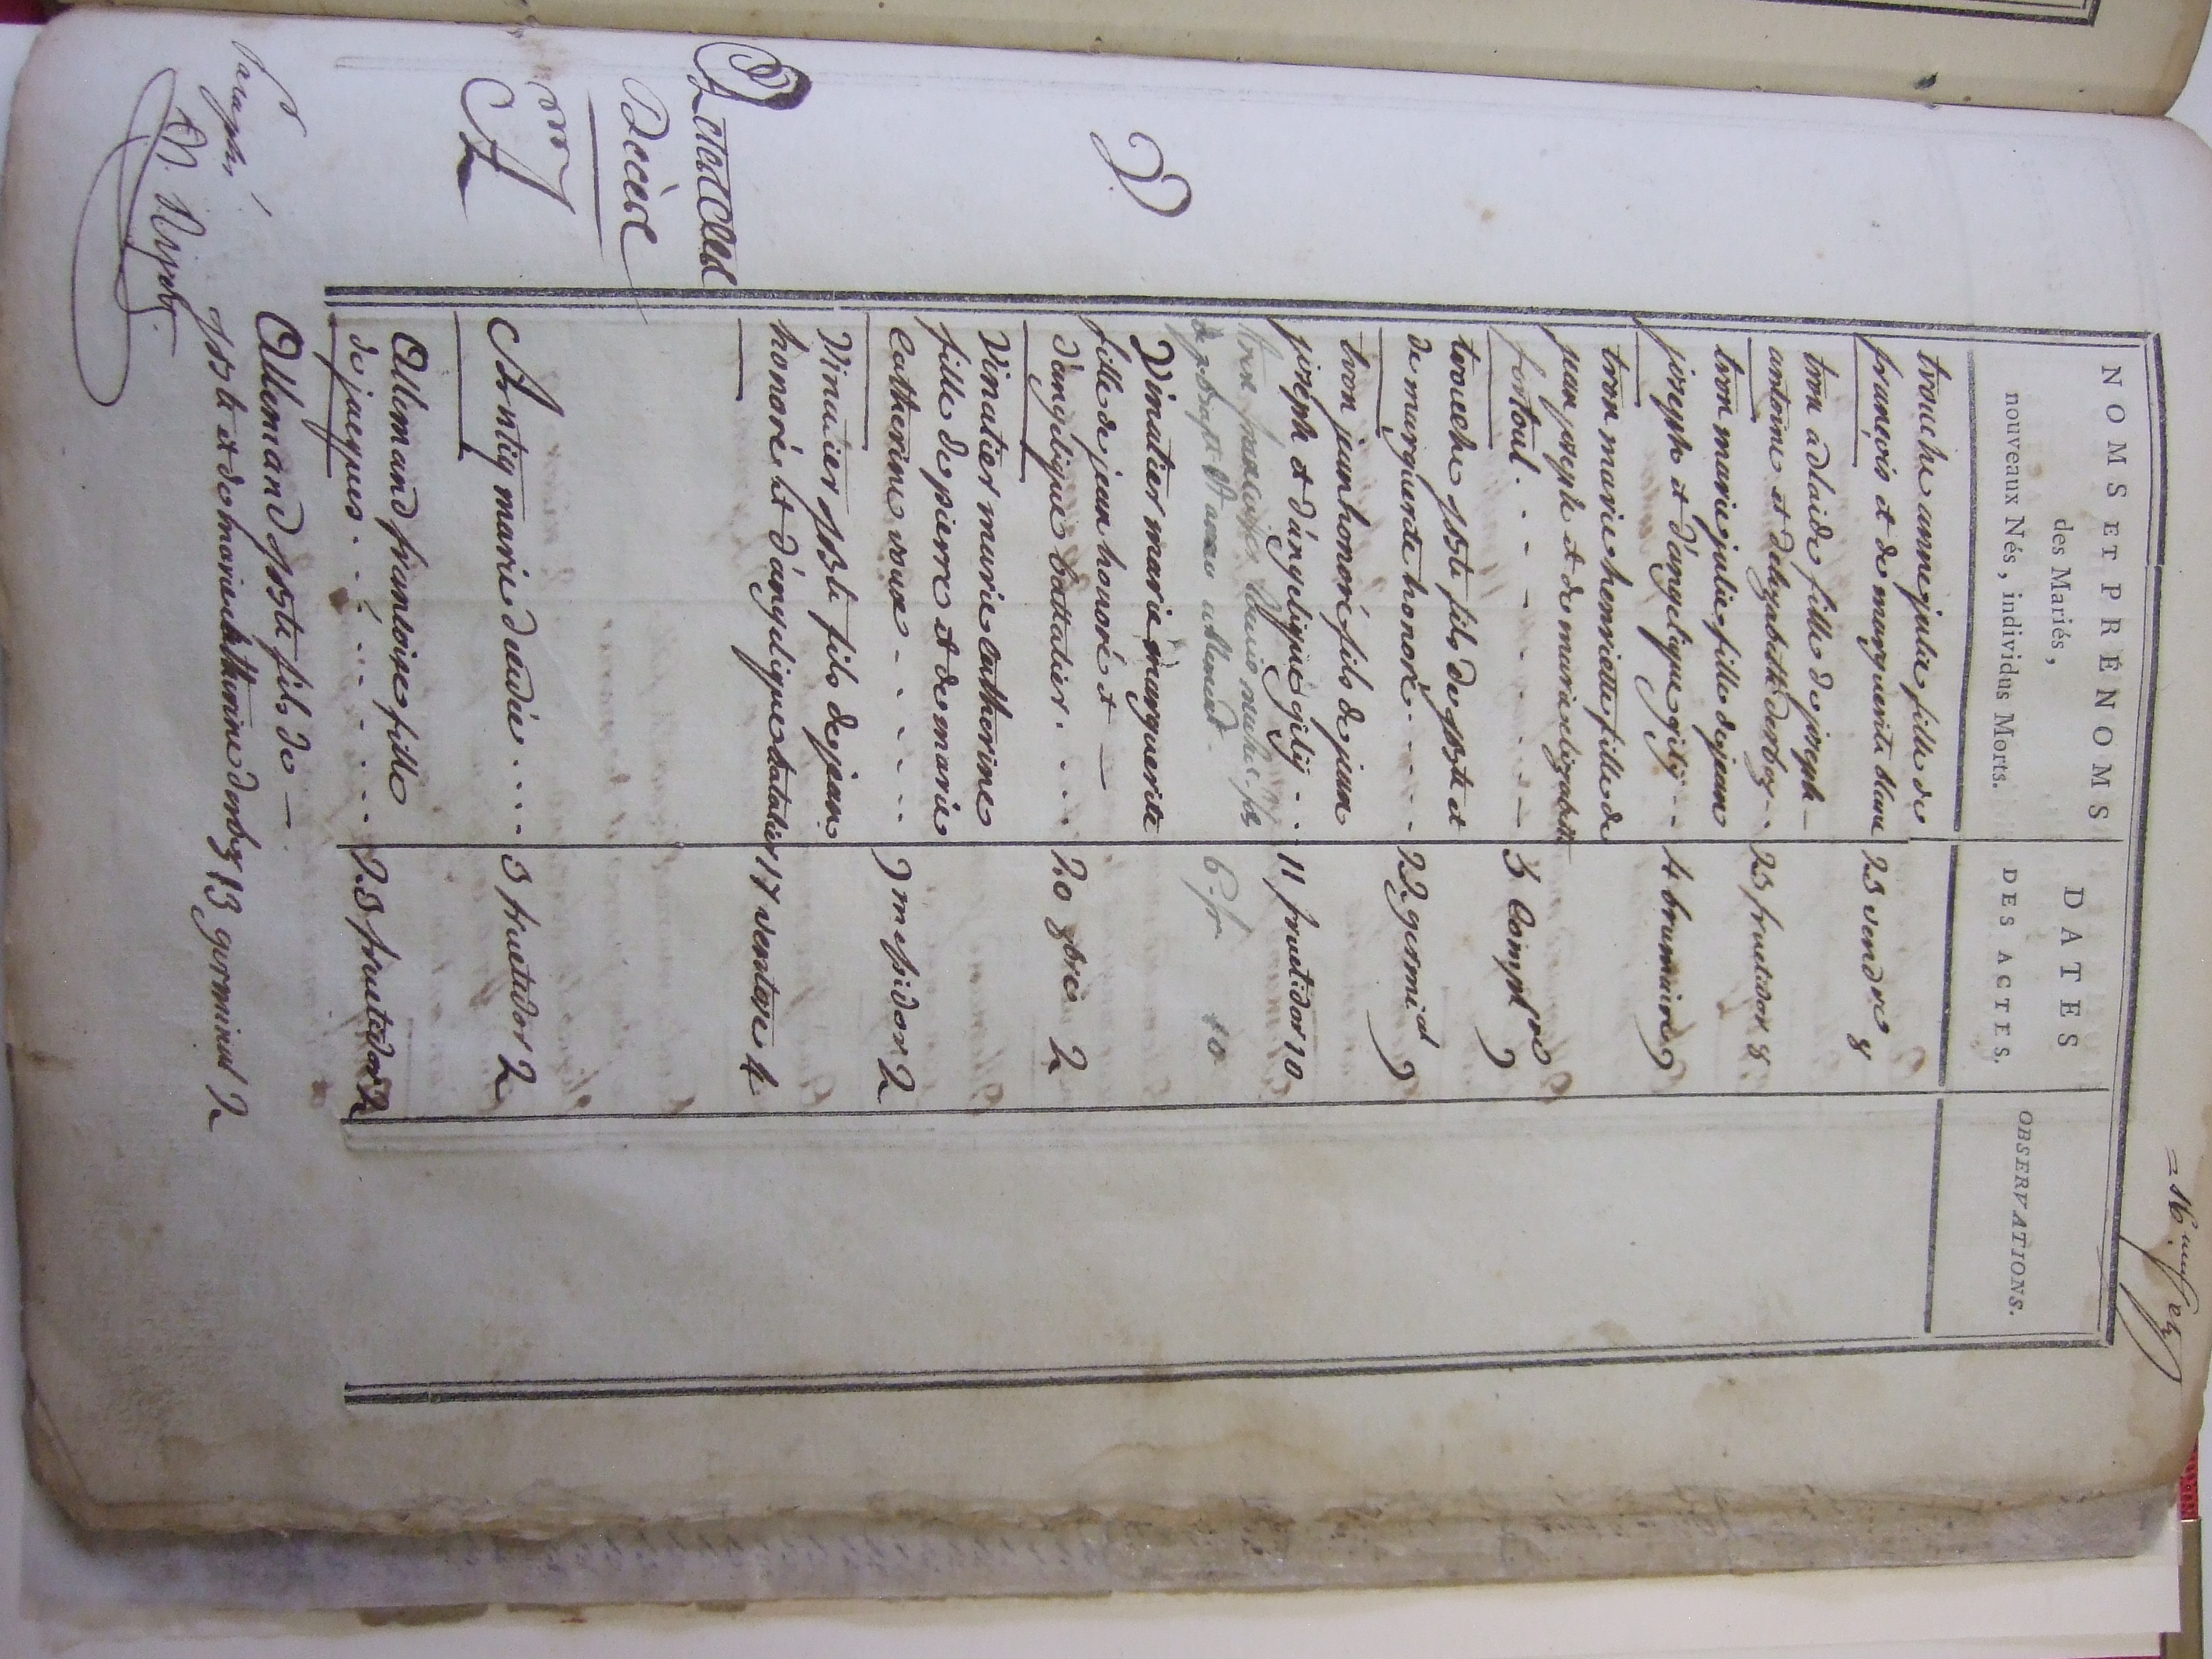 NOMS ET PRÉNOMS
des Mariés,
nouveaux Nés, individus Morts.
DATES
DES ACTES.
OBSERVATIONS.
trouche anne julie fille de
françois et de marguerite blanc 25 vendre 8
tron adlaide fille de joseph
antoine et délizabeth derbez 25 fructidor 8
tron marie julie fille de jean
joseph et d'angelique gilij 4 brumaire 9
tron marie henriette fille de
jean joseph et de marie elizabeth
fortoul 3 Complre 9
trouche jpste fils de jpste et
de marguerite honoré 22 germid 9
tron jean honoré fils de jean
joseph et d'angelique gilij 11 fructidor 10
6 fr 10
V
Vinatier marie marguerite
fille de jean honoré et
d'angelique battalier 20 9bre 2
Vinatier marie catherine
fille de pierre et de marie
Catherine roux 9 messidor 2
Vinatier jpste fils de jean
honoré et d'angelique batalier 17 ventose 4
Décès
A
Antiq marie 3 fructidor 2
Allemand françoise fille
de jacques 25 fructidor 2
Allemand jpste fils de
jpste et de marie catherine derbez 13 germinal 2
Paraphé